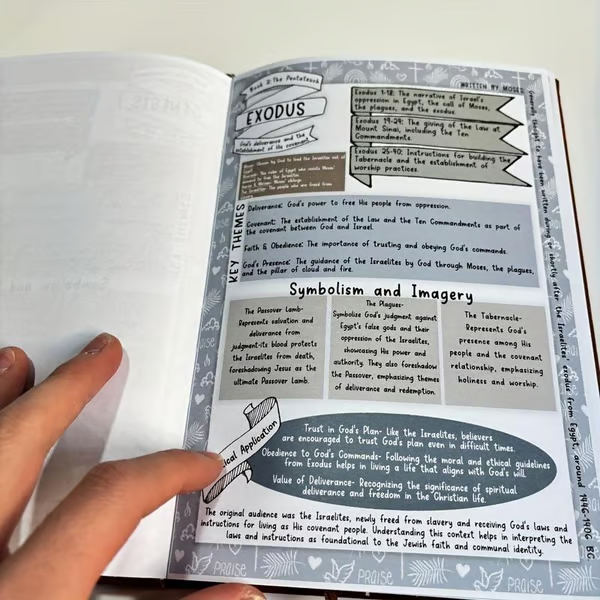 Book 2: The Pentateuch
EXODUS
God's deliverance and the
establishment of his covenant
WRITTEN BY MOSES
Exodus 1-18: The narrative of Israel's
oppression in Egypt, the call of Moses,
the plagues, and the exodus.
Exodus 19-24: The giving of the Law at
Mount Sinai, including the Ten
Commandments.
Exodus 25-40: Instructions for building the
Tabernacle and the establishment of
worship practices.
Moses: Chosen by God to lead the Israelites out of
Egypt
Pharaoh: The ruler of Egypt who resists Moses'
Aaron & Miriam: Moses' siblings
The Israelites: The people who are freed from
KEY THEMES
Deliverance: God's power to free His people from oppression.
Covenant: The establishment of the Law and the Ten Commandments as part of
the covenant between God and Israel.
Faith & Obedience: The importance of trusting and obeying God's commands.
God's Presence: The guidance of the Israelites by God through Moses, the plagues,
and the pillar of cloud and fire.
Symbolism and Imagery
The Passover Lamb-
Represents salvation and
deliverance from
judgment-its blood protects
the Israelites from death,
foreshadowing Jesus as the
ultimate Passover Lamb.
The Plagues-
Symbolize God's judgment against
Egypt's false gods and their
oppression of the Israelites,
showcasing His power and
authority. They also foreshadow
the Passover, emphasizing themes
of deliverance and redemption.
The Tabernacle-
Represents God's
presence among His
people and the covenant
relationship, emphasizing
holiness and worship.
ical Application
Trust in God's Plan- Like the Israelites, believers
are encouraged to trust God's plan even in difficult times.
Obedience to God's Commands- Following the moral and ethical guidelines
from Exodus helps in living a life that aligns with God's will.
Value of Deliverance- Recognizing the significance of spiritual
deliverance and freedom in the Christian life.
The original audience was the Israelites, newly freed from slavery and receiving God's laws and
instructions for living as His covenant people. Understanding this context helps in interpreting the
laws and instructions as foundational to the Jewish faith and communal identity.
thought to have been written during or shortly after the Israelites exodus from Egypt, around 1446-1406 BC
PRAISE
PRAISE
PRAISE